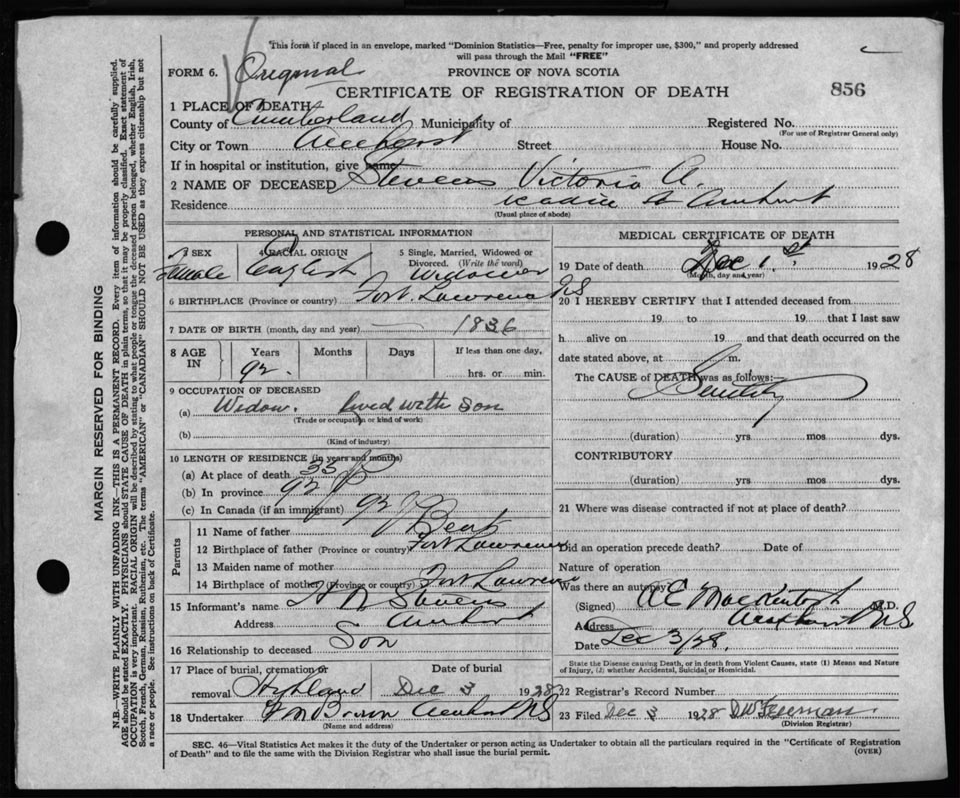 This form if placed in an envelope, marked "Dominion Statistics—Free, penalty for improper use, $300," and properly addressed
will pass through the Mail "FREE"
FORM 6. Original PROVINCE OF NOVA SCOTIA
CERTIFICATE OF REGISTRATION OF DEATH 856
1 PLACE OF DEATH
County of Cumberland Municipality of Registered No.
(For use of Registrar General only)
City or Town Amherst Street House No.
If in hospital or institution, give name
2 NAME OF DECEASED Stevens Victoria A.
Residence St Amherst
(Usual place of abode)
PERSONAL AND STATISTICAL INFORMATION
3 SEX 4 RACIAL ORIGIN 5 Single, Married, Widowed or
Divorced. (Write the word)
Female English Widow
6 BIRTHPLACE (Province or country) Fort Lawrence NS
7 DATE OF BIRTH (month, day and year) — 1836
8 AGE IN Years Months Days If less than one day,
92 hrs. or min.
9 OCCUPATION OF DECEASED
(a) Widow. lived with son
(Trade or occupation or kind of work)
(b)
(Kind of industry)
10 LENGTH OF RESIDENCE (in years and months)
(a) At place of death 35
(b) In province 92
(c) In Canada (if an immigrant) 92
Parents
11 Name of father Bent
12 Birthplace of father (Province or country) Fort Lawrence
13 Maiden name of mother
14 Birthplace of mother (Province or country) Fort Lawrence
15 Informant's name Stevens
Address Amherst
16 Relationship to deceased Son
17 Place of burial, cremation or Date of burial
removal Highland Dec 3 1928
18 Undertaker Brown Amherst NS
(Name and address)
MEDICAL CERTIFICATE OF DEATH
19 Date of death Dec 1st, 1928
(Month, day and year)
20 I HEREBY CERTIFY that I attended deceased from
19 to 19 that I last saw
h alive on 19 and that death occurred on the
date stated above, at m.
The CAUSE of DEATH was as follows:—
Senility
(duration) yrs mos dys.
CONTRIBUTORY
(duration) yrs mos dys.
21 Where was disease contracted if not at place of death?
Did an operation precede death? Date of
Nature of operation
Was there an autopsy?
(Signed) A E MacKintosh M.D.
Address Amherst NS
Date Dec 3/28
State the Disease causing Death, or in death from Violent Causes, state (1) Means and Nature
of Injury, (2) whether Accidental, Suicidal or Homicidal.
22 Registrar's Record Number
23 Filed Dec 3 1928 Freeman
(Division Registrar)
SEC. 46—Vital Statistics Act makes it the duty of the Undertaker or person acting as Undertaker to obtain all the particulars required in the "Certificate of Registration
of Death" and to file the same with the Division Registrar who shall issue the burial permit. (OVER)
MARGIN RESERVED FOR BINDING
N.B.—WRITE PLAINLY WITH UNFADING INK—THIS IS A PERMANENT RECORD. Every item of information should be carefully supplied.
AGE should be stated EXACTLY. PHYSICIANS should STATE CAUSE OF DEATH in plain terms, so that it may be properly classified. Exact statement of
OCCUPATION is very important. RACIAL ORIGIN will be described by stating to what people or tongue the deceased person belonged, whether English, Irish,
Scotch, French, German, Russian, Ruthenian, etc. The terms "AMERICAN" or "CANADIAN" SHOULD NOT BE USED as they express citizenship but not
a race or people. See instructions on back of Certificate.